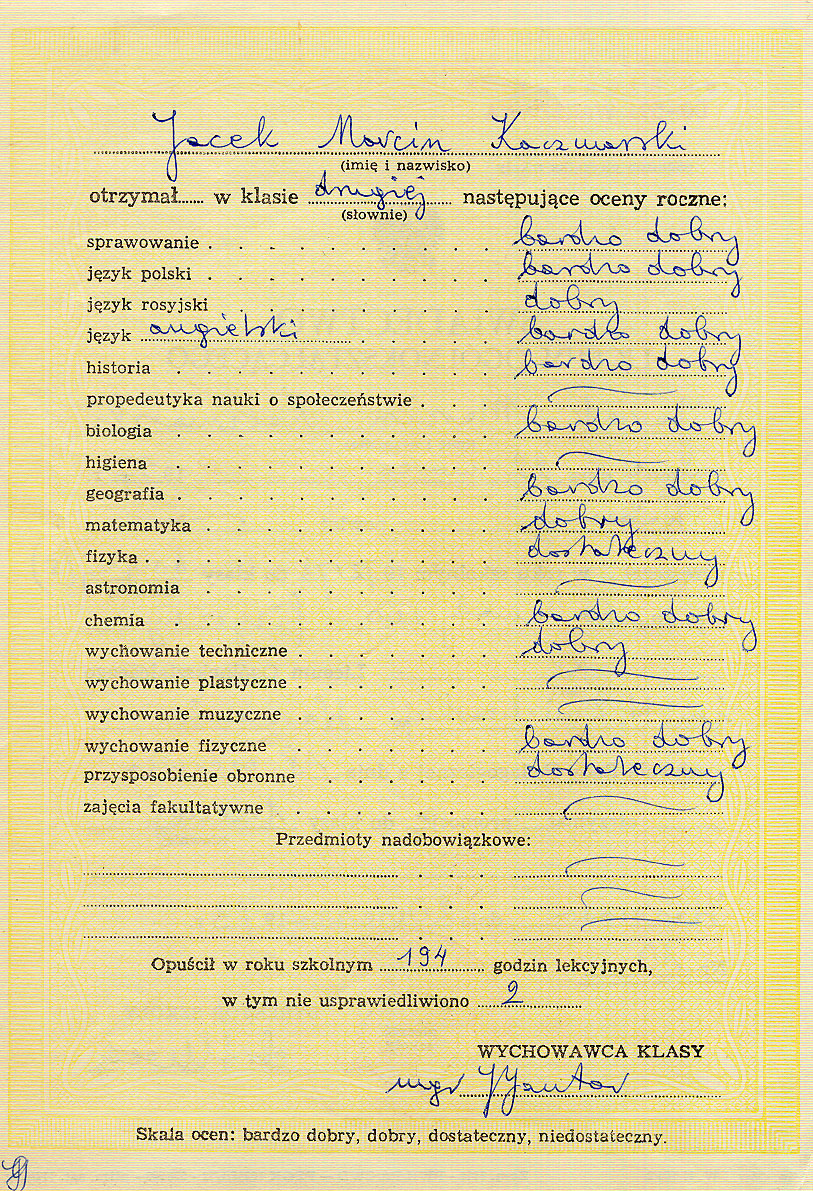 Jacek Marcin Kaczmarski
(imię i nazwisko)
otrzymał...... w klasie drugiej następujące oceny roczne:
(słownie)
sprawowanie . . . . . . . . . bardzo dobry
język polski . . . . . . . . . bardzo dobry
język rosyjski . . . . . . . . dobry
język angielski . . . . bardzo dobry
historia . . . . . . . . . . bardzo dobry
propedeutyka nauki o społeczeństwie . . .
biologia . . . . . . . . . . bardzo dobry
higiena . . . . . . . . . .
geografia . . . . . . . . . . bardzo dobry
matematyka . . . . . . . . . dobry
fizyka . . . . . . . . . . . dostateczny
astronomia . . . . . . . . .
chemia . . . . . . . . . . bardzo dobry
wychowanie techniczne . . . . . . dobry
wychowanie plastyczne . . . . . .
wychowanie muzyczne . . . . . .
wychowanie fizyczne . . . . . . bardzo dobry
przysposobienie obronne . . . . . dostateczny
zajęcia fakultatywne . . . . . .
Przedmioty nadobowiązkowe:
Opuścił w roku szkolnym 194 godzin lekcyjnych,
w tym nie usprawiedliwiono 2
WYCHOWAWCA KLASY
mgr
Skala ocen: bardzo dobry, dobry, dostateczny, niedostateczny.